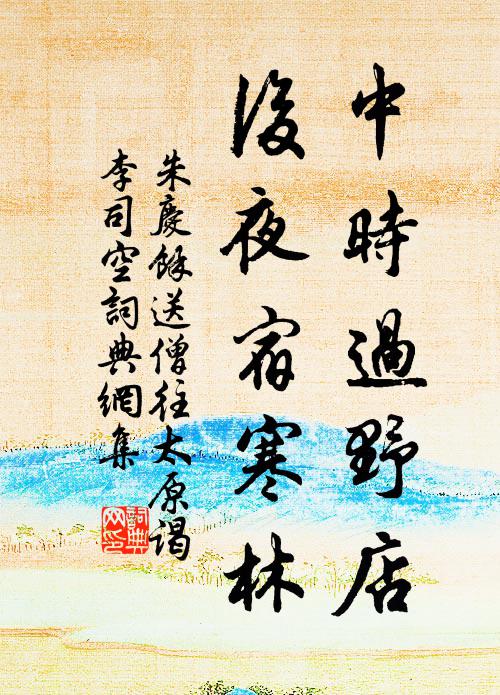 中時過野店
後夜宿寒林
朱慶餘送僧往太原謁
李司空詞典網集
詞典
网印